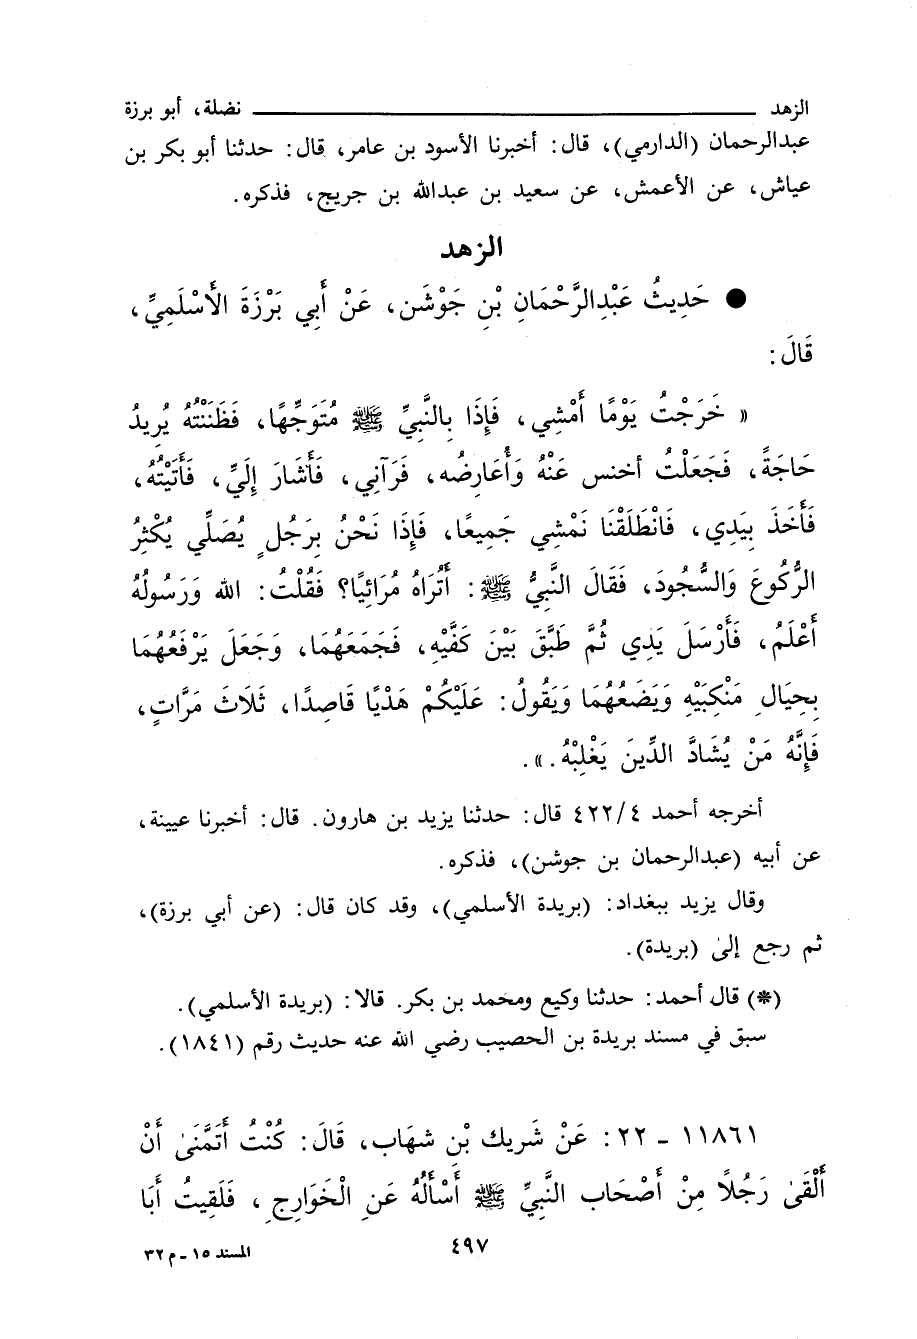 الزهد ــــــــــــــــــــــــــــــ نضلة، أبو برزة
عبدالرحمان (الدارمي)، قال: أخبرنا الأسود بن عامر، قال: حدثنا أبو بكر بن
عياش، عن الأعمش، عن سعيد بن عبدالله بن جريج، فذكره.
الزهد
● حَدِيثُ عَبْدِالرَّحْمَانِ بْنِ جَوْشَن، عَنْ أَبِي بَرْزَةَ الأَسْلَمِيِّ،
قَالَ:
« خَرَجْتُ يَوْمًا أَمْشِي، فَإِذَا بِالنَّبِيِّ ﷺ مُتَوَجِّهًا، فَظَنَنْتُهُ يُرِيدُ
حَاجَةً، فَجَعَلْتُ أخنس عَنْهُ وَأُعَارِضُه، فَرَآنِي، فَأَشَارَ إِلَيَّ، فَأَتَيْتُهُ،
فَأَخَذَ بِيَدِي، فَانْطَلَقْنَا نَمْشِي جَمِيعًا، فَإِذَا نَحْنُ بِرَجُلٍ يُصَلِّي يُكْثِرُ
الرُّكُوعَ وَالسُّجُودَ، فَقَالَ النَّبِيُّ ﷺ: أَتُرَاهُ مُرَائِيًا؟ فَقُلْتُ: الله وَرَسُولُهُ
أَعْلَمُ، فَأَرْسَلَ يَدِي ثُمَّ طَبَّقَ بَيْنَ كَفَّيْهِ، فَجَمَعَهُمَا، وَجَعَلَ يَرْفَعُهُمَا
بِحِيَالِ مَنْكِبَيْهِ وَيَضَعُهُمَا وَيَقُولُ: عَلَيْكُمْ هَدْيًا قَاصِدًا، ثَلَاثَ مَرَّاتٍ،
فَإِنَّهُ مَنْ يُشَادَّ الدِّينَ يَغْلِبْهُ.».
أخرجه أحمد ٤٢٢/٤ قال: حدثنا يزيد بن هارون. قال: أخبرنا عيينة،
عن أبيه (عبدالرحمان بن جوشن)، فذكره.
وقال يزيد ببغداد: (بريدة الأسلمي)، وقد كان قال: (عن أبي برزة)،
ثم رجع إلىٰ (بريدة).
(*) قال أحمد: حدثنا وكيع ومحمد بن بكر. قالا: (بريدة الأسلمي).
سبق في مسند بريدة بن الحصيب رضي الله عنه حديث رقم (١٨٤١).
١١٨٦١ - ٢٢: عَنْ شَرِيك بْنِ شِهَاب، قَالَ: كُنْتُ أَتَمَنَىٰ أَنْ
أَلْقَىٰ رَجُلًا مِنْ أَصْحَاب النَّبِيِّ ﷺ أَسْأَلُهُ عَنِ الْخَوَارِجِ، فَلَقِيتُ أَبَا
٤٩٧
المسند ١٥ - م ٣٢